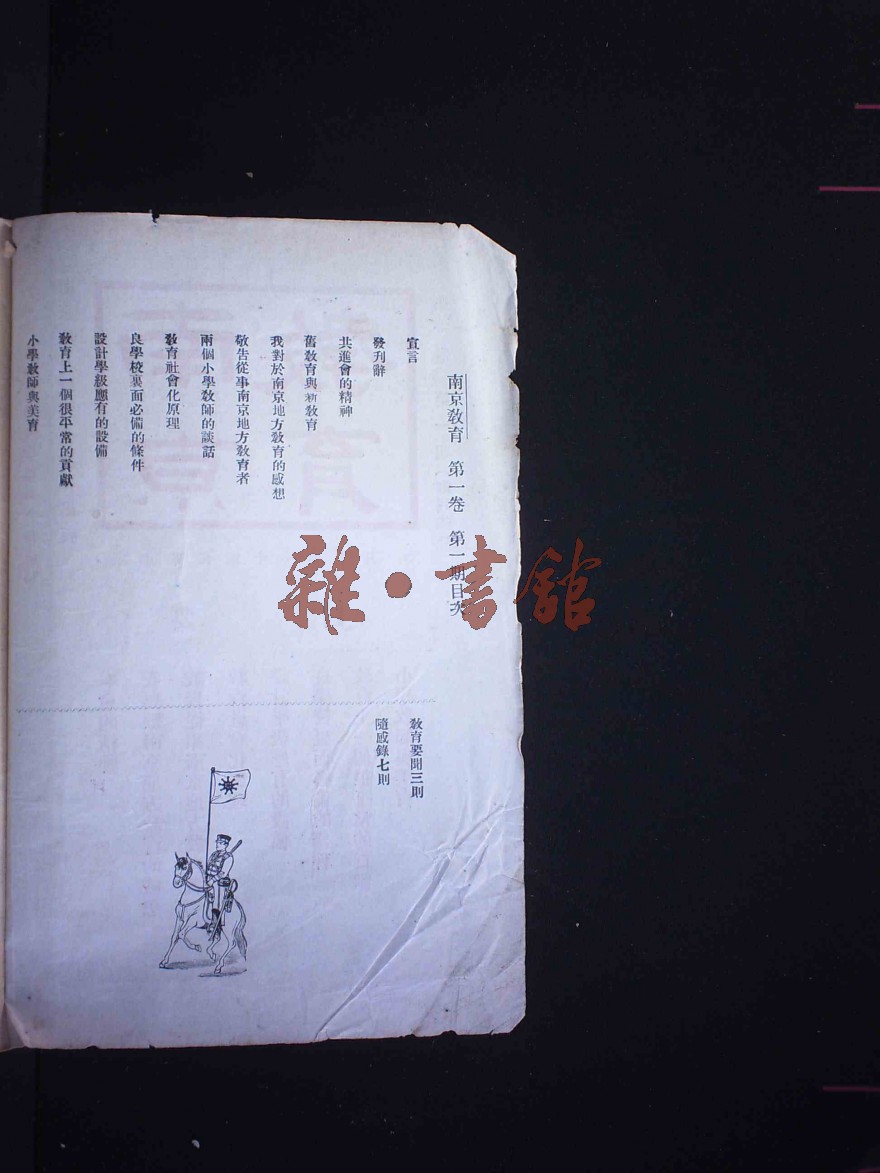 南京教育 第一卷 第一期目次
宣言
發刊辭
共進會的精神
舊教育與新教育
我對於南京地方教育的感想
敬告從事南京地方教育者
兩個小學教師的談話
教育社會化原理
良學校裏面必備的條件
設計學級應有的設備
教育上一個很平常的貢獻
小學教師與美育
教育要聞三則
隨感錄七則
雜·書館